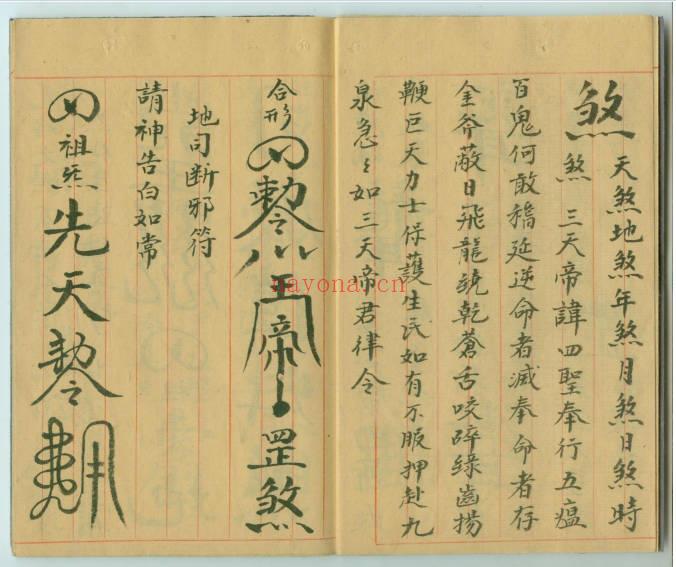 天煞地煞年煞月煞日煞時
煞 煞 三天帝諱四聖奉行五瘟
百鬼何敢稽延逆命者滅奉命者存
金斧蔽日飛龍繞乾蒼舌咬碎綠齒揚
鞭巨天力士保護生民如有不服押赴九
泉急〻如三天帝君律令
合形 帝 罡煞
地司断邪符
請神告白如常
祖炁先天
nayona.cn